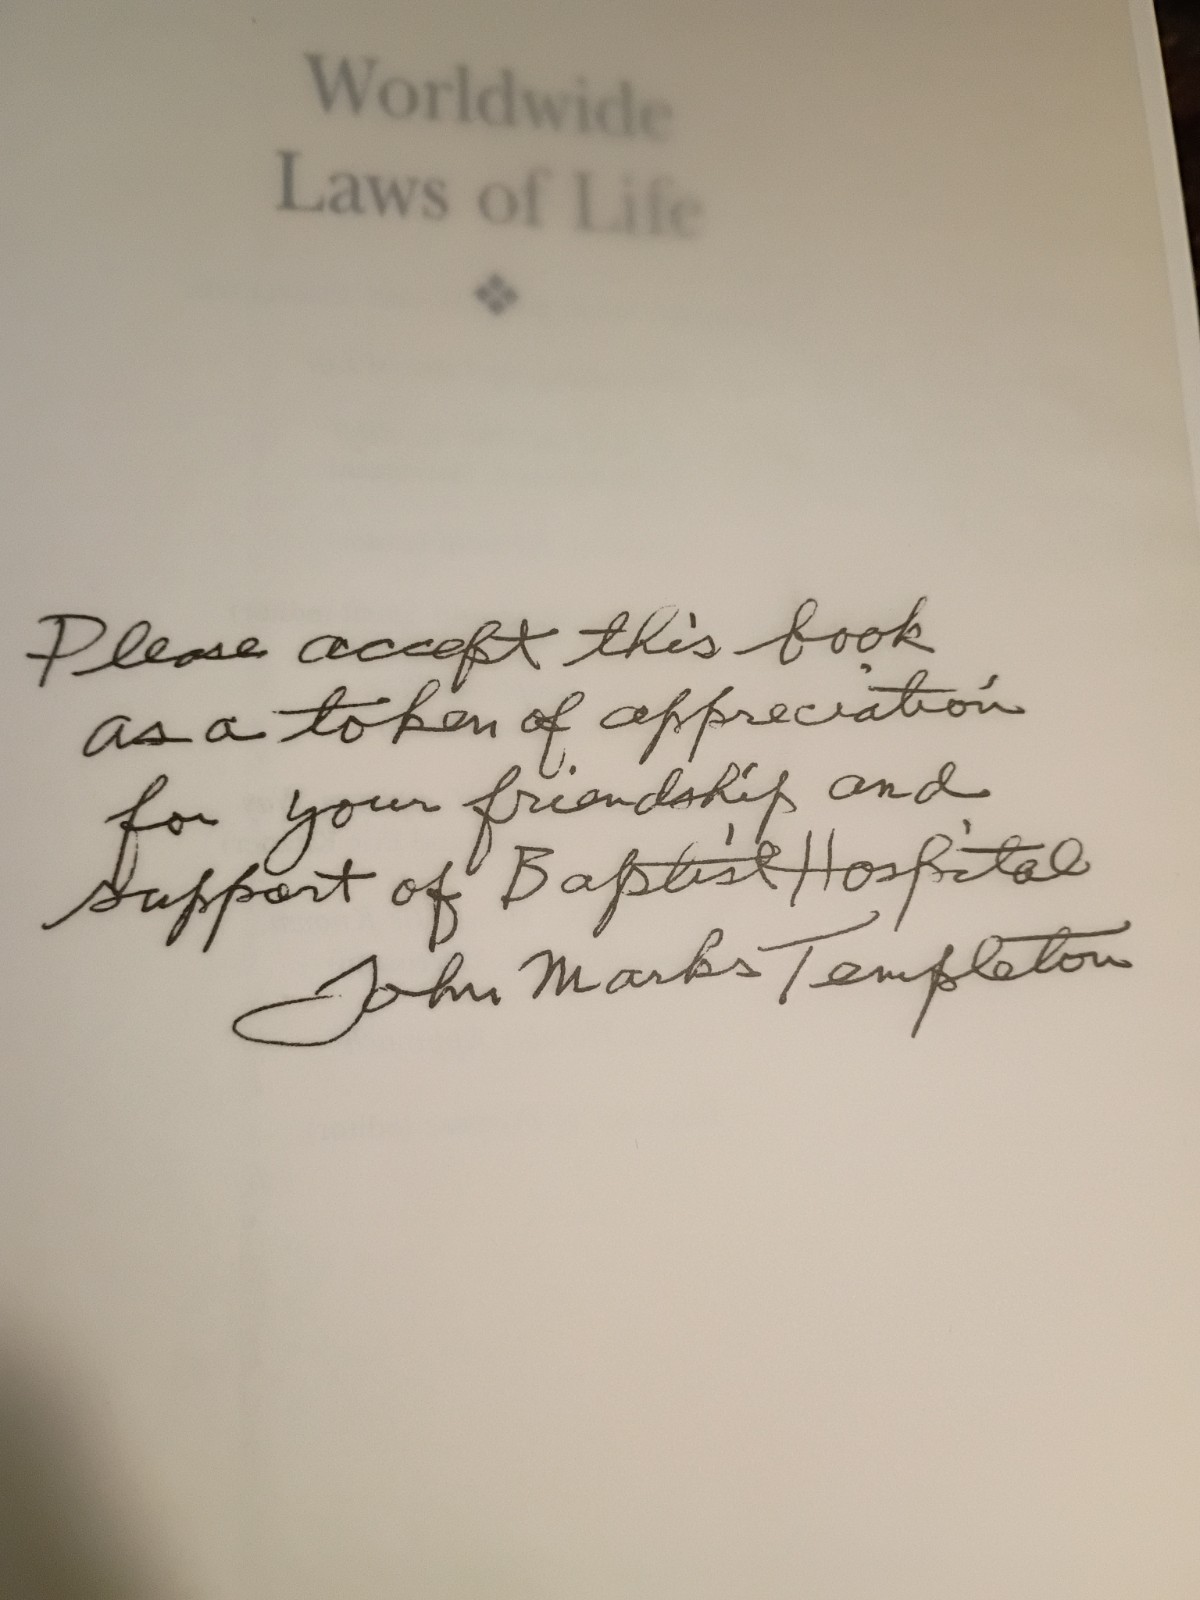 Worldwide
Laws of Life
Please accept this book
as a token of appreciation
for your friendship and
support of Baptist Hospital
John Marks Templeton